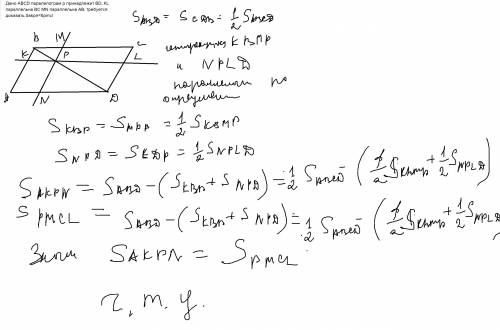 Дано ABCD параллелограм p принадлежит BD, KL
параллельна BC MN параллельно AB. требуется
доказать Sakpn=Spmcl
B M C
K P L
A N D
S ABD = S CDB = 1/2 S ABCD
KBMP
и NPLD
по
S KBP = S MBP = 1/2 S KBMP
S NPD = S LDP = 1/2 S NPLD
S AKPN = S ABD - (S KBP + S NPD) = 1/2 S ABCD - (1/2 S KBMP + 1/2 S NPLD)
S PMCL = S ABD - (S KBP + S NPD) = 1/2 S ABCD - (1/2 S KBMP + 1/2 S NPLD)
S AKPN = S PMCL
ч. т. у.